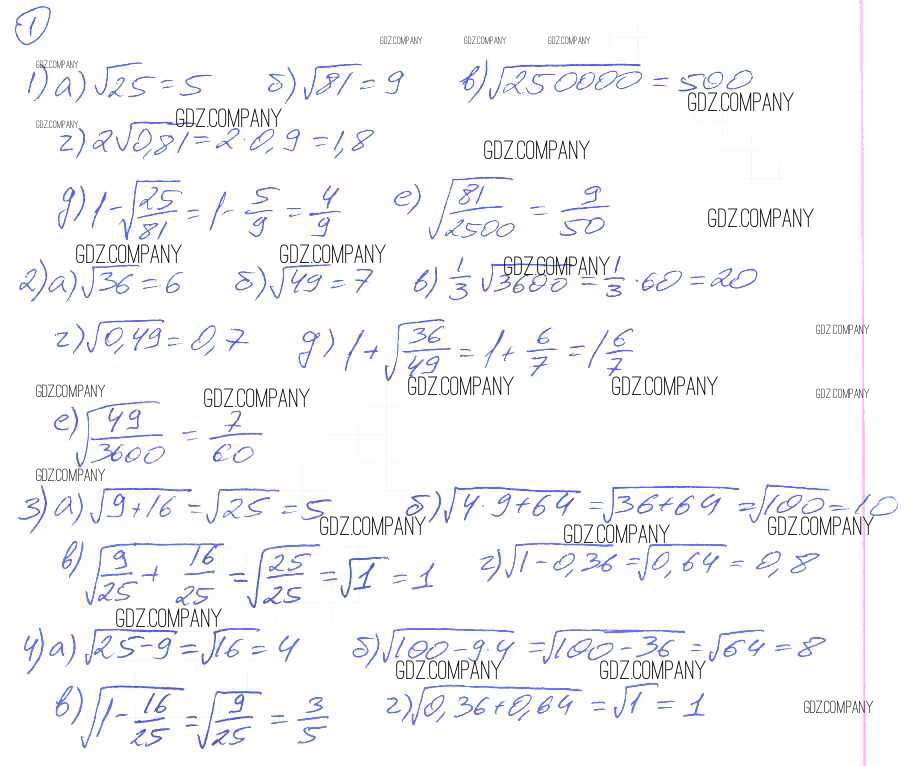 1
GDZ.COMPANY GDZ.COMPANY GDZ.COMPANY
GDZ.COMPANY
1) а) √25 = 5 б) √81 = 9 в) √250000 = 500
GDZ.COMPANY GDZ.COMPANY
GDZ.COMPANY
г) 2√0,81 = 2·0,9 = 1,8
GDZ.COMPANY
д) 1 - √(25/81) = 1 - 5/9 = 4/9 е) √(81/2500) = 9/50
GDZ.COMPANY
GDZ.COMPANY GDZ.COMPANY GDZ.COMPANY
2) а) √36 = 6 б) √49 = 7 в) 1/3 √3600 = 1/3 · 60 = 20
г) √0,49 = 0,7 д) 1 + √(36/49) = 1 + 6/7 = 1 6/7
GDZ.COMPANY
GDZ.COMPANY GDZ.COMPANY GDZ.COMPANY GDZ.COMPANY GDZ.COMPANY
е) √(49/3600) = 7/60
GDZ.COMPANY
3) а) √(9+16) = √25 = 5 б) √(4·9+64) = √(36+64) = √100 = 10
GDZ.COMPANY GDZ.COMPANY GDZ.COMPANY
в) √(9/25 + 16/25) = √(25/25) = √1 = 1 г) √(1-0,36) = √0,64 = 0,8
GDZ.COMPANY
4) а) √(25-9) = √16 = 4 б) √(100-9·4) = √(100-36) = √64 = 8
GDZ.COMPANY GDZ.COMPANY
в) √(1 - 16/25) = √(9/25) = 3/5 г) √(0,36+0,64) = √1 = 1
GDZ.COMPANY